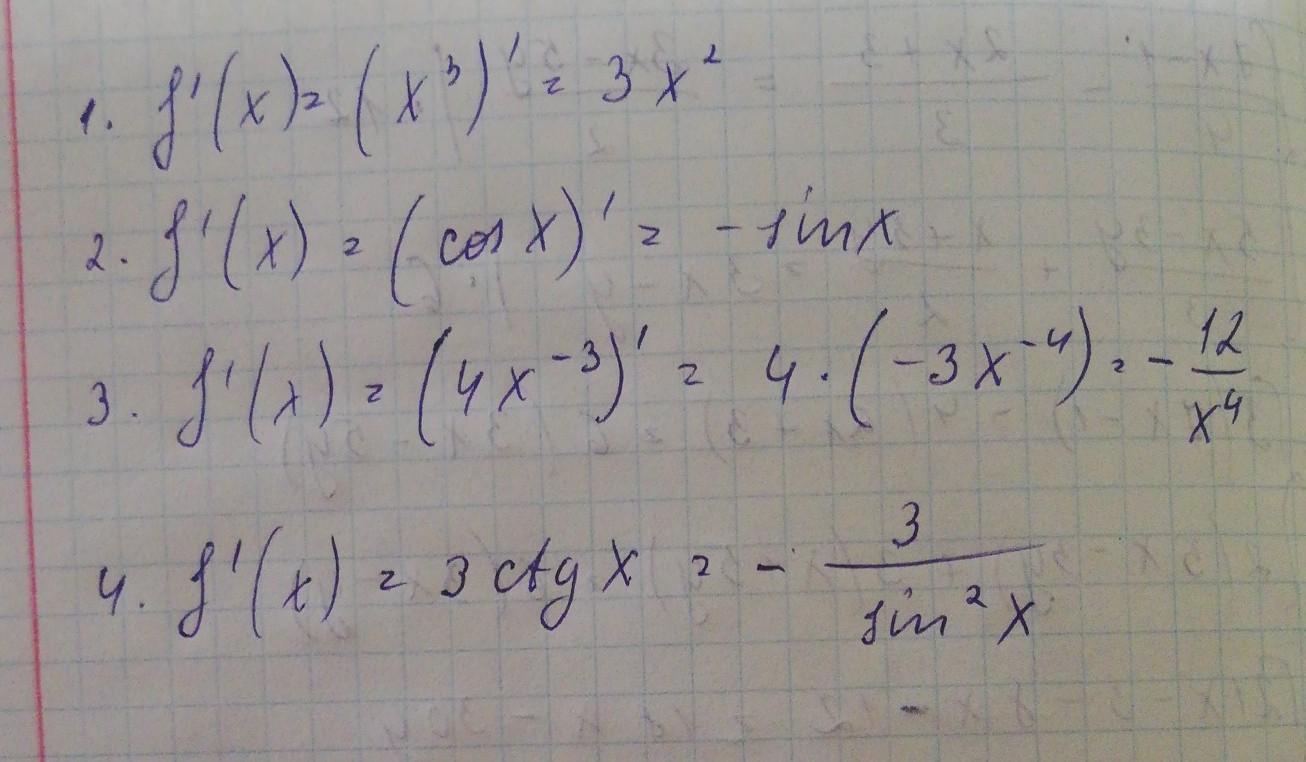 1. f'(x) = (x³)' = 3x²
2. f'(x) = (cos x)' = - sin x
3. f'(x) = (4x⁻³)' = 4 · (-3x⁻⁴) = - 12/x⁴
4. f'(x) = 3 ctg x = - 3/sin² x